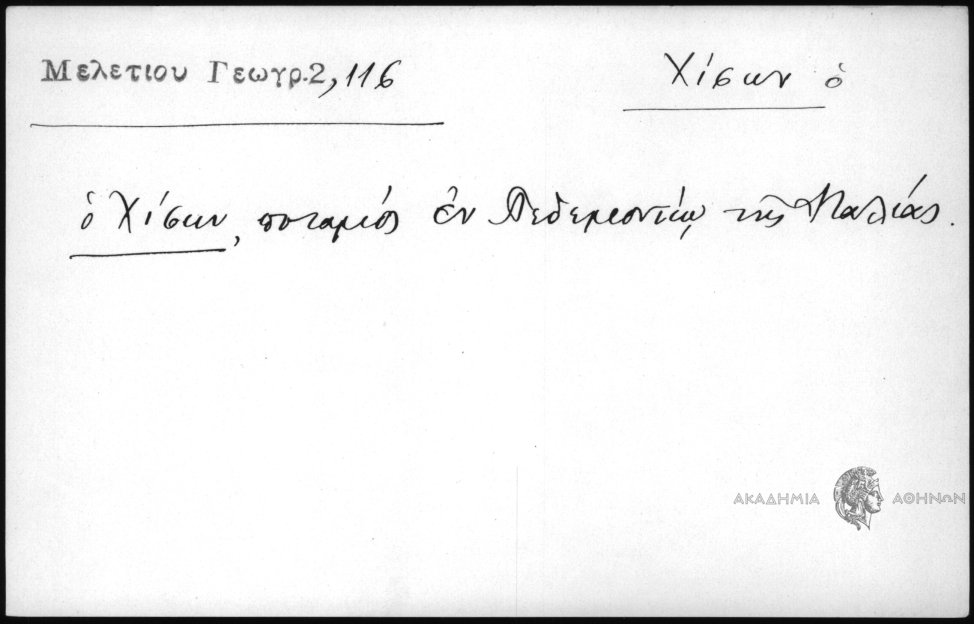 Μελετιου Γεωγρ.2,116
Χίσων ὁ
ὁ Χίσων, ποταμὸς ἐν Πεδεμοντίῳ τῆς Ἰταλίας.
ΑΚΑΔΗΜΙΑ ΑΘΗΝΩΝ